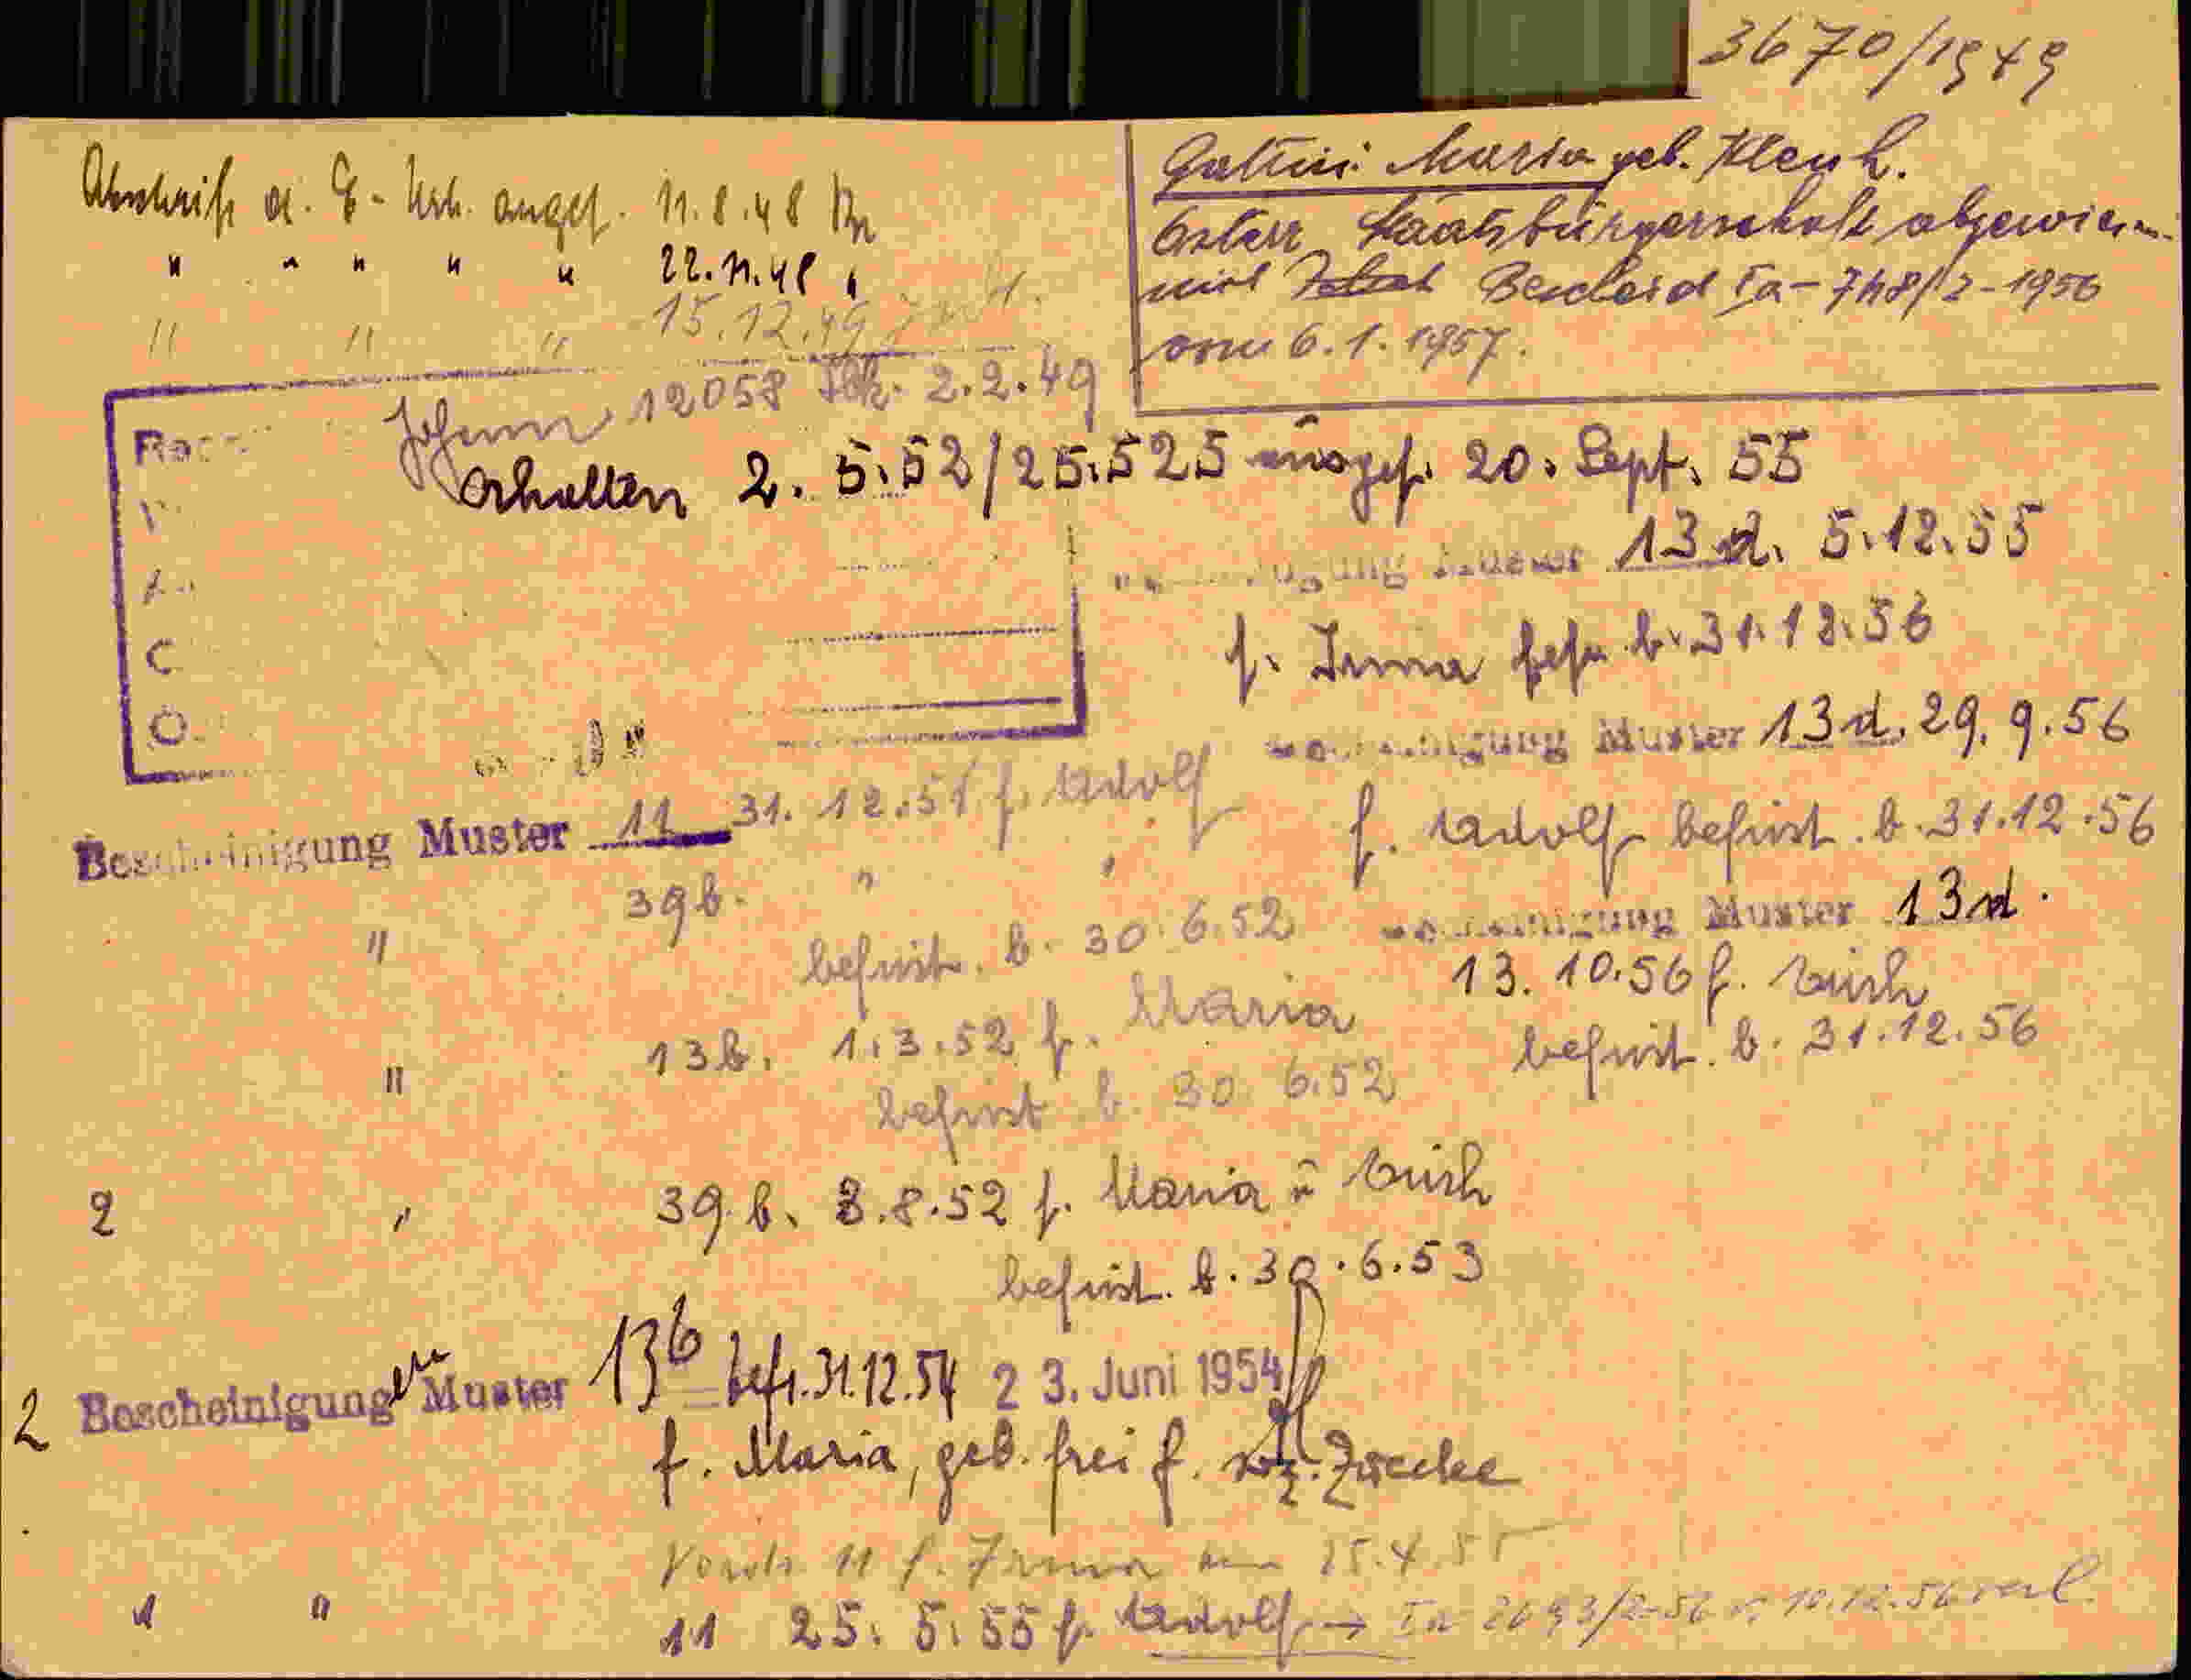 3670/1949
Gattin: Maria geb. Klenk.
Österr. Staatsbürgerschaft abgewiesen
mit Bescheid Ia-748/2-1956
vom 6.1.1957.
Abschrift a. E-Urk. angef. 11.8.48
" " " " " 22.11.48 "
" " " 15.12.49
12058 2.2.49
erhalten 2. 5.52/25.525 ausgef. 20. Sept. 55
13 d. 5.12.55
f. Irma b. 31.12.56
Muster 13 d. 29.9.56
f. Adolf befrist. b. 31.12.56
Muster 13 d.
13. 10.56 f. Erich
befrist. b. 31.12.56
Bescheinigung Muster 11 31. 12.51 f. Adolf
" 39 b. " "
befrist. b. 30.6.52
" 13 b. 1.3.52 f. Maria
befrist b. 30 6.52
2 " 39. b. 3.8.52 f. Maria u Erich
befrist. b. 30.6.53
2 Bescheinigungen Muster 13b befr. 31.12.54 23. Juni 1954
f. Maria, geb. frei f. Zwecke
Vordr. 11 f. Irma am 25.4.55
" " 11 25. 5. 55 f. Adolf → Ia 2693/2-56 v. 10.12.56 verl.